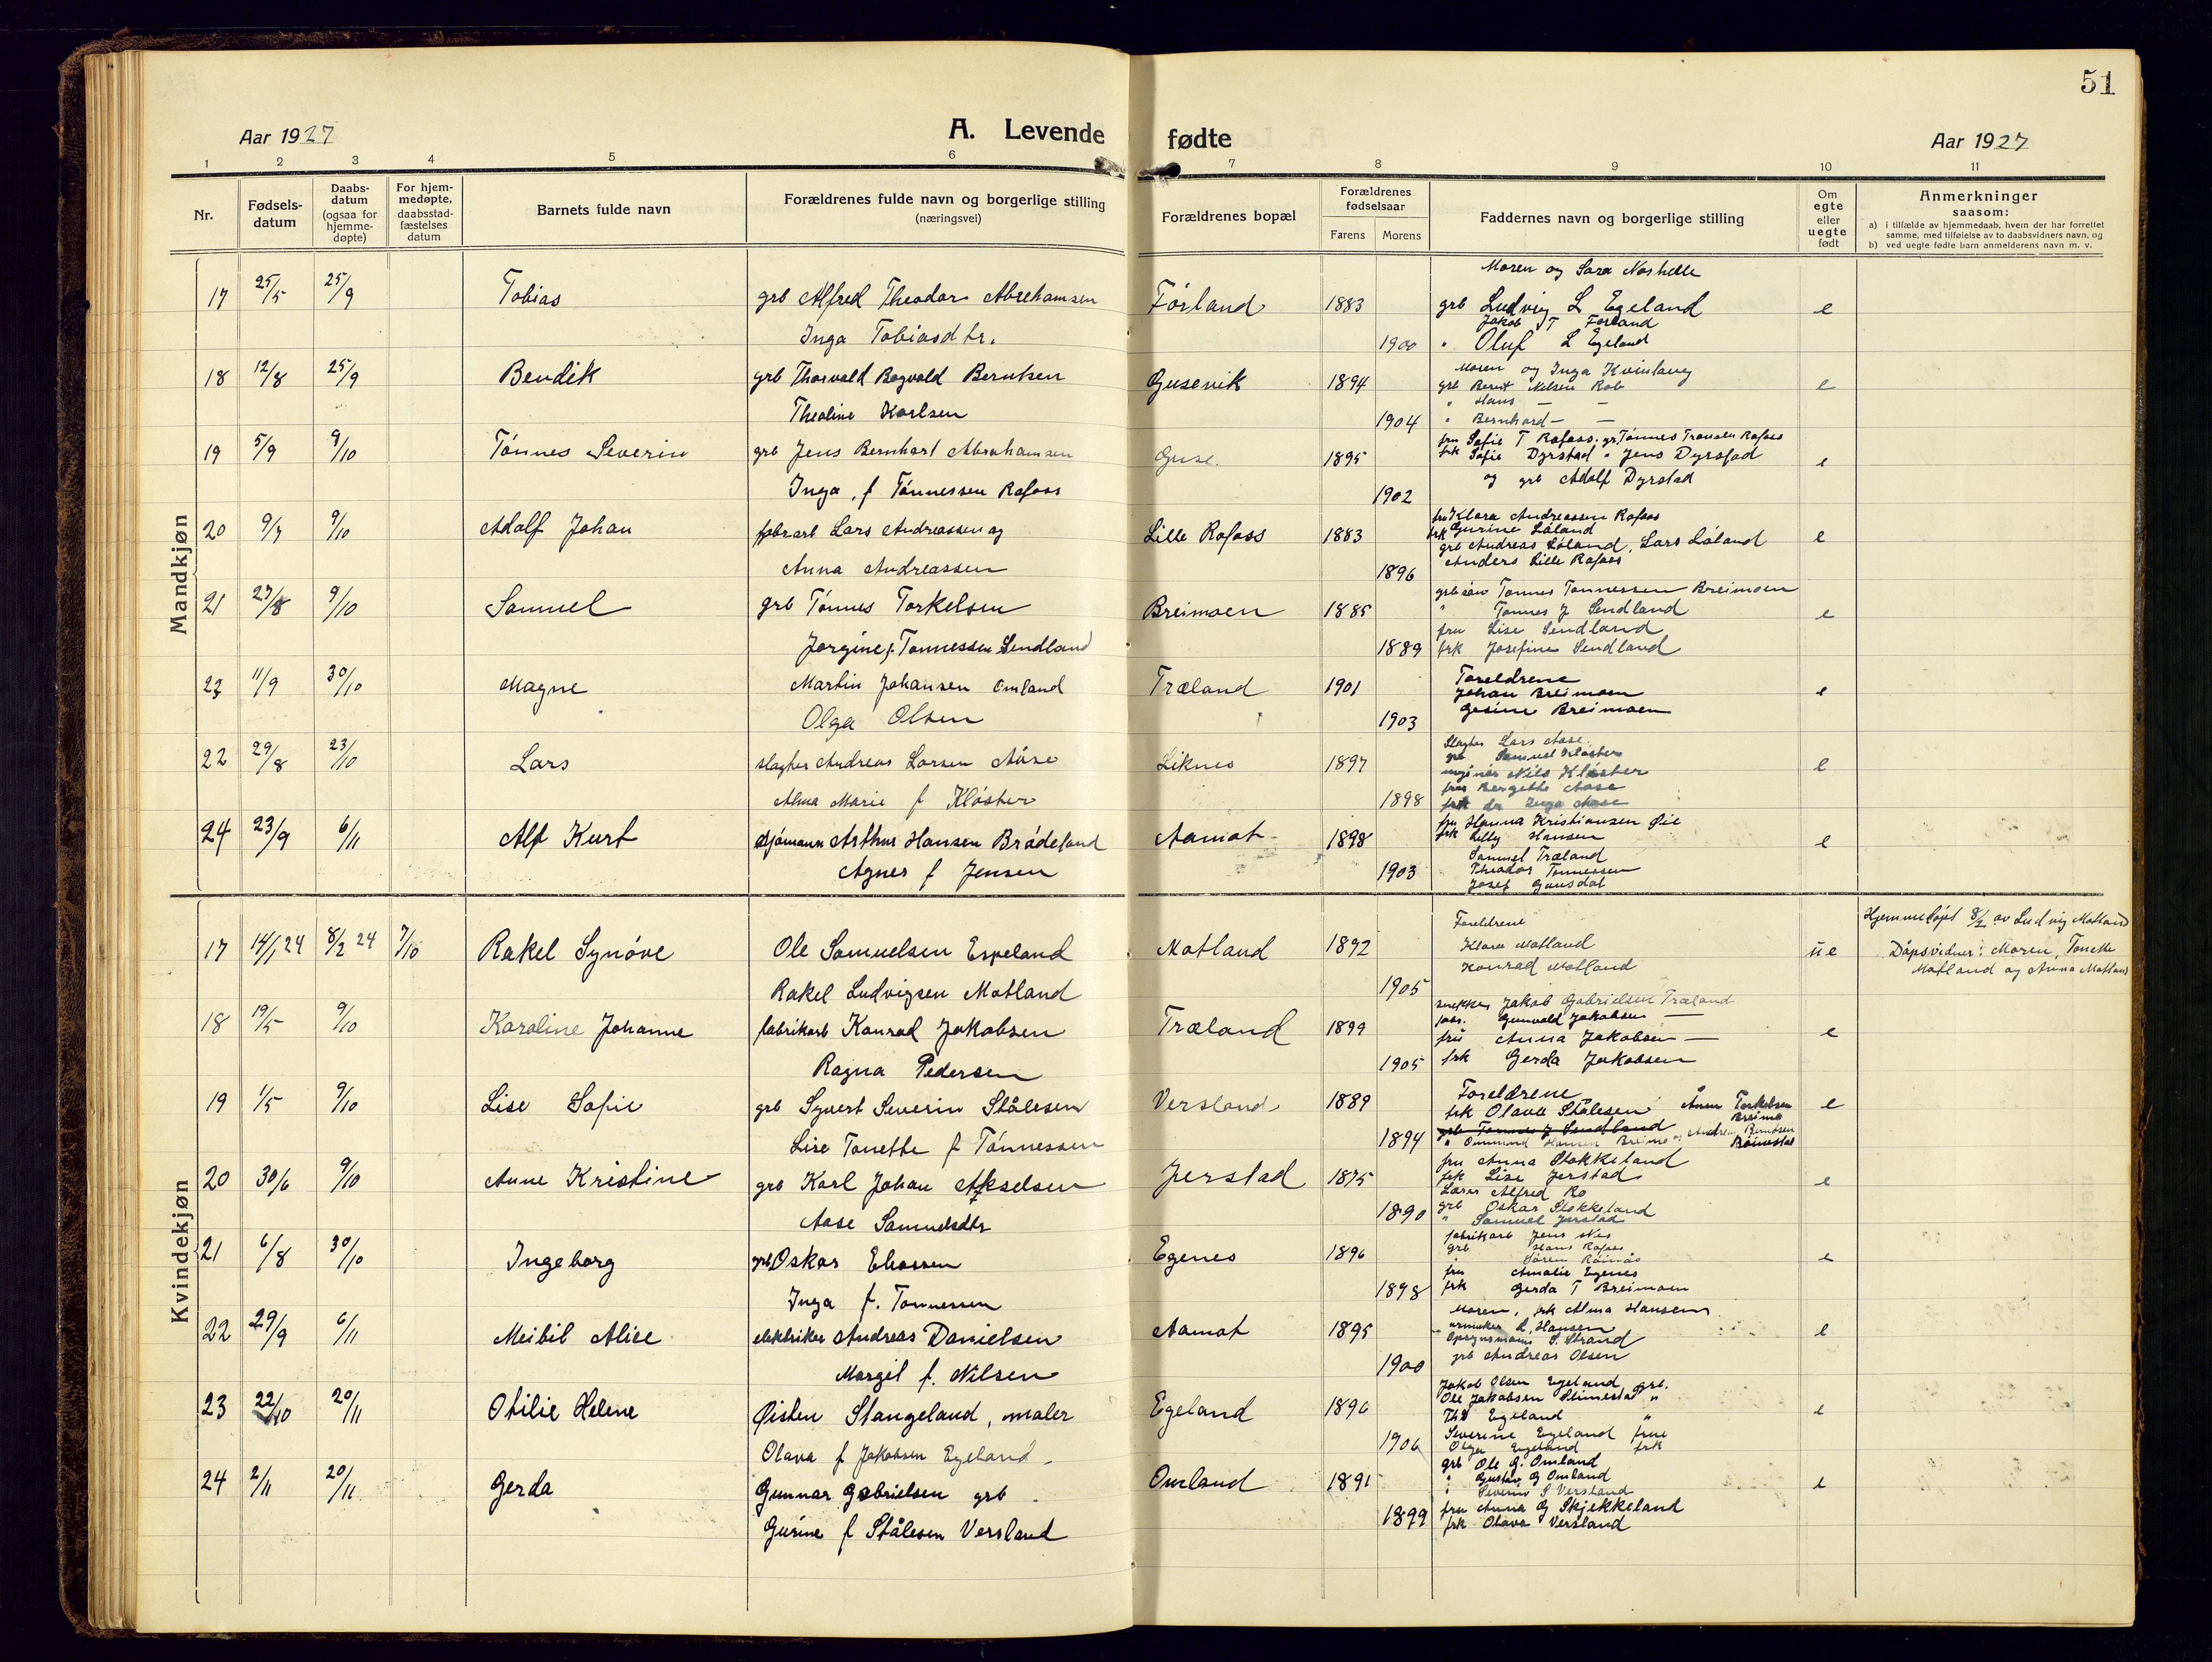 51
Aar 1927
A. Levende fødte
Aar 1927
1 2 3 4 5 6 7 8 9 10 11
Nr.
Fødsels-datum
Daabs-datum (ogsaa for hjemme-døpte)
For hjem-medøpte, daabsstad-fæstelses datum
Barnets fulde navn
Forældrenes fulde navn og borgerlige stilling (næringsvei)
Forældrenes bopæl
Forældrenes fødselsaar
Farens Morens
Faddernes navn og borgerlige stilling
Om egte eller uegte født
Anmerkninger saasom:
a) i tilfælde av hjemmedaab, hvem der har forrettet samme, med tilføielse av to daabsvidners navn, og
b) ved uegte fødte barn anmelderens navn m. v.
Mandkjøn
Moren og Sara
17 25/5 25/9 Tobias grb Alfred Theodor Abrehamsen Førland 1883 grb Ludvig L Egeland e
Jakob T Førland
Inga Tobiasdtr. 1900 " Oluf L Egeland
Moren og Inga Kvinlaug
18 12/8 25/9 Bendik grb Thorvald Berntsen Gusevik 1894 grb Bernt Nilsen Rob e
" Hans — —
Theoline Karlsen 1904 " Bernhard — —
fru Sofie T Rafoss. gr Tønnes Rafoss
19 5/9 9/10 Tønnes Severin grb Jens Bernhart Abrahamsen Guse. 1895 frk Sofie Dyrstad " Jens Dyrstad e
og grb Adolf Dyrstad
Inga, f Tønnessen Rafoss 1902
fru Klara Andreassen Rafoss
20 9/7 9/10 Adolf Johan Lars Andreassen og Lille Rafoss 1883 frk Gurine Låland e
grb Andreas Låland, Lars Låland
Anna Andreassen 1896 Anders Lille Rafoss
Tønnes Tønnessen Breimoen
21 27/8 9/10 Samuel grb Tønnes Torkelsen Breimoen 1885 " Tønnes J Sendland e
fru Lise Sendland
Jorgine f. Tønnessen Sendland 1889 frk Josefine Sendland
Foreldrene
23 11/9 30/10 Magne Martin Johansen Omland Træland 1901 Johan Breimoen e
Olga Olsen 1903 Gesine Breimoen
Slagter Lars Aase
22 29/8 23/10 Lars slagter Andreas Larsen Åase Liknes 1897 grb Samuel Kloster e
Nils Kløster
fru Bergitte Aase
Alma Marie f Kløster 1898 frk Inga Aase
fru Hanna Kristiansen Øie
24 23/9 6/11 Alf Kurt sjømann Arthur Hansen Brådeland Aamot 1898 frk Lilly Hansen e
Samuel Træland
Agnes f Jensen 1903 Theodor Tønnessen
Josef
Kvindekjøn
Foreldrene Hjemmedøpt 8/2 av Ludvig Matland
17 14/1 24 8/2 24 7/10 Rakel Synøve Ole Samuelsen Espeland Matland 1892 Klara Matland ue Dåpsvidner: Moren, Tonette
Konrad Matland Matland og Anna Matland
Rakel Ludvigsen Matland 1905
snekker Jakob Gabrielsen Træland
18 19/5 9/10 Karoline Johanne fabrikarb Konrad Jakobsen Træland 1899 Gunvald Jakobsen — e
fru Anna Jakobsen —
Ragna Pedersen 1905 frk Gerda Jakobsen
Foreldrene
19 1/5 9/10 Lise Sofie grb Syvert Severin Stålesen Versland 1889 frk Olava Stålesen Torkelsen Breimo e
grb Tønnes J Sendland
Lise Tonette f Tønnessen 1894
fru Anna Stokkeland
20 30/6 9/10 Anne Kristine grb Karl Johan Akselsen Jerstad 1875 frk Lise Jerstad e
Lærer Alfred Ro
Aase Samuelsdtr 1890 grb Oskar Stokkeland
" Samuel Jerstad
fabrikarb Jens
21 6/8 30/10 Ingeborg grb Oskar Eliassen Egenes 1896 grb Hans Rafoss e
fru Amalie Egenes
Inga f. Tønnessen 1898 frk Gerda T Breimoen
Moren, frk Alma Hansen
22 29/9 6/11 Meibil Alice elektriker Andreas Danielsen Aamot 1895 urmaker Hansen e
S. Strand
Margit f. Nilsen 1900 grb Andreas Olsen
Jakob Olsen Egeland grb.
23 22/10 20/11 Otilie Helene Øisten Stangeland, maler Egeland 1896 Ole Jakobsen " e
Egeland "
Olava f Jakobsen Egeland 1906 Severine Egeland frue
Olga Egeland frk
grb Ole G. Omland
24 2/11 20/11 Gerda Gunnar Gabrielsen grb Omland 1891 " Gustav G Omland e
" Severin S Versland
Gurine f Stålesen Versland 1899 fru Anna G Skjekkeland
frk Olava Versland